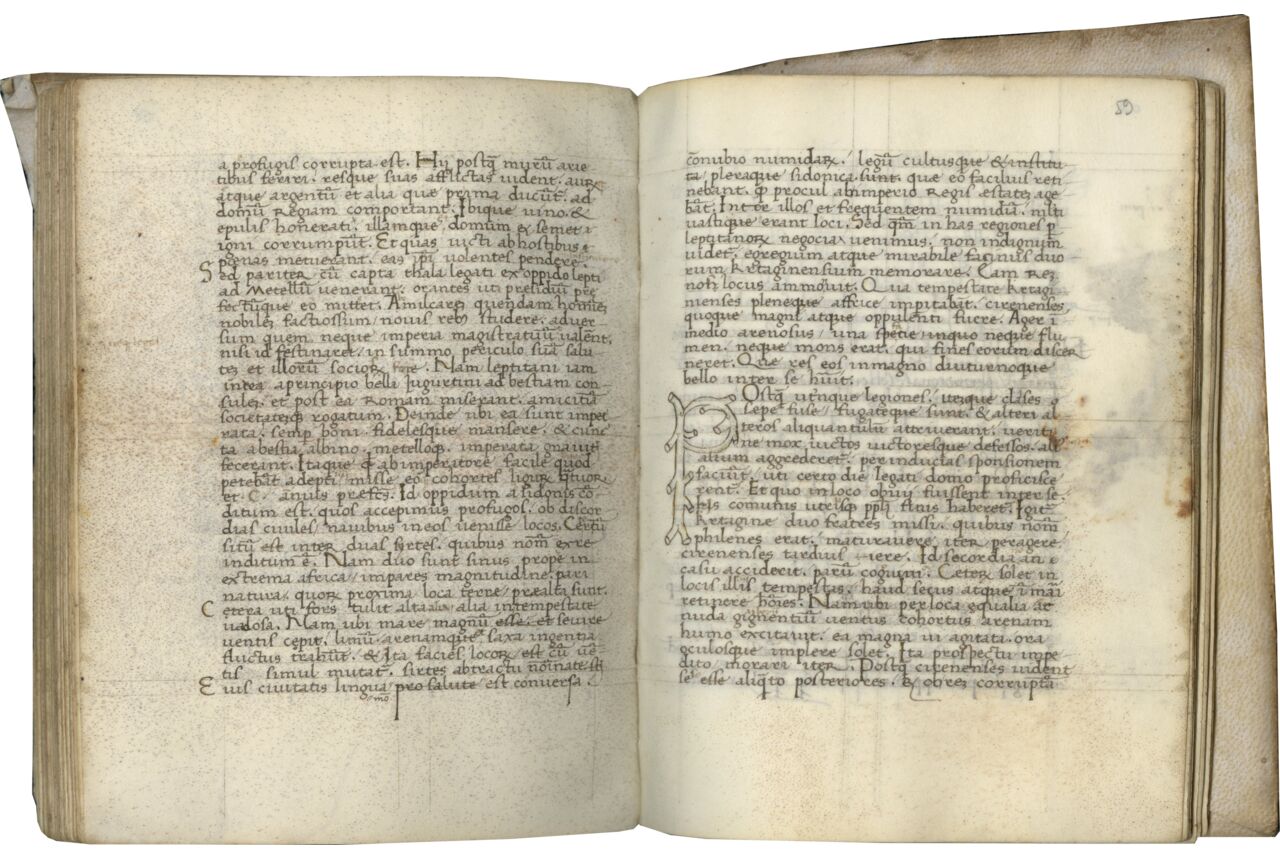 a profugis corrupta est. Hij postq̃ murũ arie
tibus feriri. resque suas afflictas uident. aurꝝ
atque argentũ et alia quæ prima ducũt. ad
domũ Regiam comportant. Ibique uino. &
epulis honerati. illamque. domum & semet i
igni corrumpũt. Et quas uicti ab hostibus
pœnas metuerant. eas ip̃i volentes pendere
Sed pariter cũ capta thala legati ex oppido lepti
ad Metellũ uenerunt. orantes uti presidiũ pre
fectũque eo mittet. Amilcarẽ quendam hominẽ
nobilẽ factiossum / nouis rebꝫ studere. aduer
sum quem neque imperia magistratuũ ualent.
nisi id festinaret / in summo periculo suã salu
tẽ et illorũ socioꝝ fore. Nam leptitani iam
inde a principio belli Jugurtini ad bestiam con
sulẽ. et post ea Romam miserant. amicitiã
societatẽqꝫ rogatum. Deinde ubi ea sunt impet
rata. semp̃ boni fidelesque mansere. & cunc
ta abestia albino. metelloqꝫ. imperata gnauit̃
fecerant. Itaque ab imperatore facile quod
petebãt adepti. misse eo cohortes liguꝝ q̃tuor
et. C. anius prefcs̃. Id oppidum a sidonis cõ
ditum est. quos accepimus profugos. ob discor
dias ciuiles nauibus in eos uenisse locos. Cetũ
sitũ est inter duas syrtes. quibus nom̃ ex re
inditum ẽ. Nam duo sunt sinus prope in
extrema africa / impares magnitudine. pari
natura. quoꝝ proxima loca terre. præalta sunt.
Cetera uti fors tulit alta alia in tempestate
uadosa. Nam ubi mare magnũ esse. et seuire
uentis cepit. limũ. arenamque. saxa ingentia
fluctus trahũt. & Ita facies locoꝝ est cũ uẽ
tis simul mutat̃. sirtes abtractu nõinate st̃
Eius ciuitatis lingua pro salute est conuersa.
mõ
59
cõnubio numidaꝝ. legũ cultusque & institu
ta / pleraque sidonica sunt. quæ eo facilius reti
nebant. q̃ procul ab imperio Regis æstatẽ age
bãt. Inter illos et frequentem numidiã. m̃lti
uastique erant loci. Sed qm̃ in has regiones p̱
leptitanoꝝ negocia uenimus. non indignum
uidet̃. egregium atque mirabile facinus duo
rum Krtaginensium memorare. Eam Rẽ
nob̃ locus ammonuit. Qua tempestate Krtagi
nienses pleneque affrice imp̃itabãt. cirenenses
quoque magni atque oppulenti fuere. Ager i
medio arenosus / una spetie in quo neque flu
men. neque mons erat. qui fines eorum discer
neret. Que res eos in magno diuturnoque
bello inter se huit̃.
POstq̃ utrinque legiones. itẽque clases
sepe fuse / fugateque sunt. & alteri al
teros aliquantulũ attriuerant. veriti
ne mox uictos uictoresque defessos. ali9
alium aggrederet̃. per inducias sponsionem
faciũt. uti certo die legati domo proficisce
rent̃. Et quo in loco obuij fuissent inter se.
is comunis utriusqꝫ pp̃li finis haberet̃. Igit̃
Krtagine duo fratres missi. quibus nom̃
philenes erat. maturauere iter peragere
cirenenses tardius iere. Id secordia an
casu acciderit. parũ cognoui. Ceteꝝ solet in
locis illis tempestas. haud secus atque i mari
retinere hoĩes. Nam ubi per loca equalia &
nuda gignentiũ uentus cohortus arenam
humo excitauit. ea magna ui agitata. ora
oculosque implere solet. Ita prospectu impe
dito / morari iter. Postq̃ cirenenses uident
se esse aliq̃to posteriores. & ob rẽ corruptã